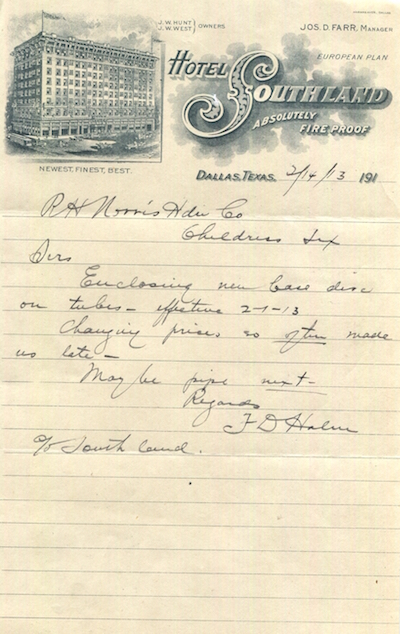 J. W. HUNT
J. W. WEST
OWNERS
JOS. D. FARR, MANAGER
EUROPEAN PLAN
HOTEL
SOUTHLAND
ABSOLUTELY
FIRE PROOF
NEWEST, FINEST, BEST.
DALLAS, TEXAS, 2/14/13 191
R H Norris Hdw Co
Childress Tex
Sirs
Enclosing new base disc
on tubes - effective 2-1-13
Changing prices so often made
us late -
May be pipe next -
Regards
F D
c/o South land.